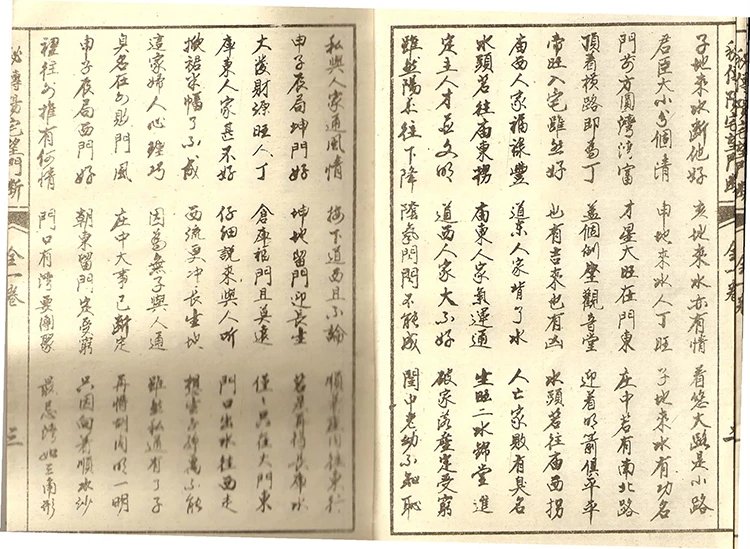 子地來水斷他好 亥地來水亦有情 着悠大路是小路
君臣大小分個清 申地來水人丁旺 子地來水有功名
門前方圓灣灣富 才星大旺在門東 庄中若有南北路
頂着橫路即為丁 蓋個倒座觀音堂 迎着明箭俱平平
帝旺入宅雖然好 也有吉來也有凶 水頭若往庙西拐
庙西人家福祿豐 道東人家背了水 人亡家敗有臭名
水頭若往庙東拐 庙東人家氣運通 生旺二水錦堂進
定主人才並文明 道西人家大不好 破家落產定受窮
雖然陽氣往下降 陰氣閉門不能成 閨中老幼不知恥
私與人家通風情 接下道西且不論 順着門往東行
申子辰局坤門好 坤地留門迎長生 若是再得長流水
大發財源旺人丁 倉庫棺門且莫遠 僅僅只在大門東
庫東人家甚不好 仔細說來與人听 門口出水往西走
掀裙水幅了不成 西流更冲長生地 想害子孫萬不能
這家婦人心理巧 因為無子與人通 雖然私通有了子
臭名在外財門風 庄中大事已斷定 再將周明一明
申子辰局西門好 朝東留門定受窮 只因向着順水沙
裙往外推有何情 門口有灣要團聚 最忌灣如三角形
秘傳陽宅望門斷 全一卷 三